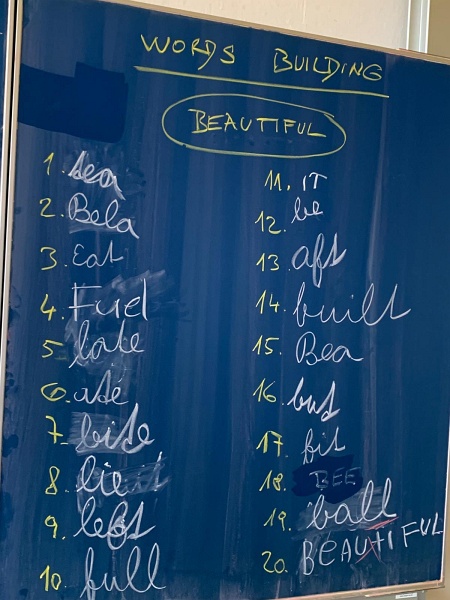 WORDS BUILDING
BEAUTIFUL
1.
2. Bela
3. Eat
4. Fuel
5. late
6. até
7. bite
8. lie
9. left
10. full
11. IT
12. be
13. aft
14. built
15. Bea
16. but
17. fit
18. BEE
19. ball
20. BEAUTIFUL